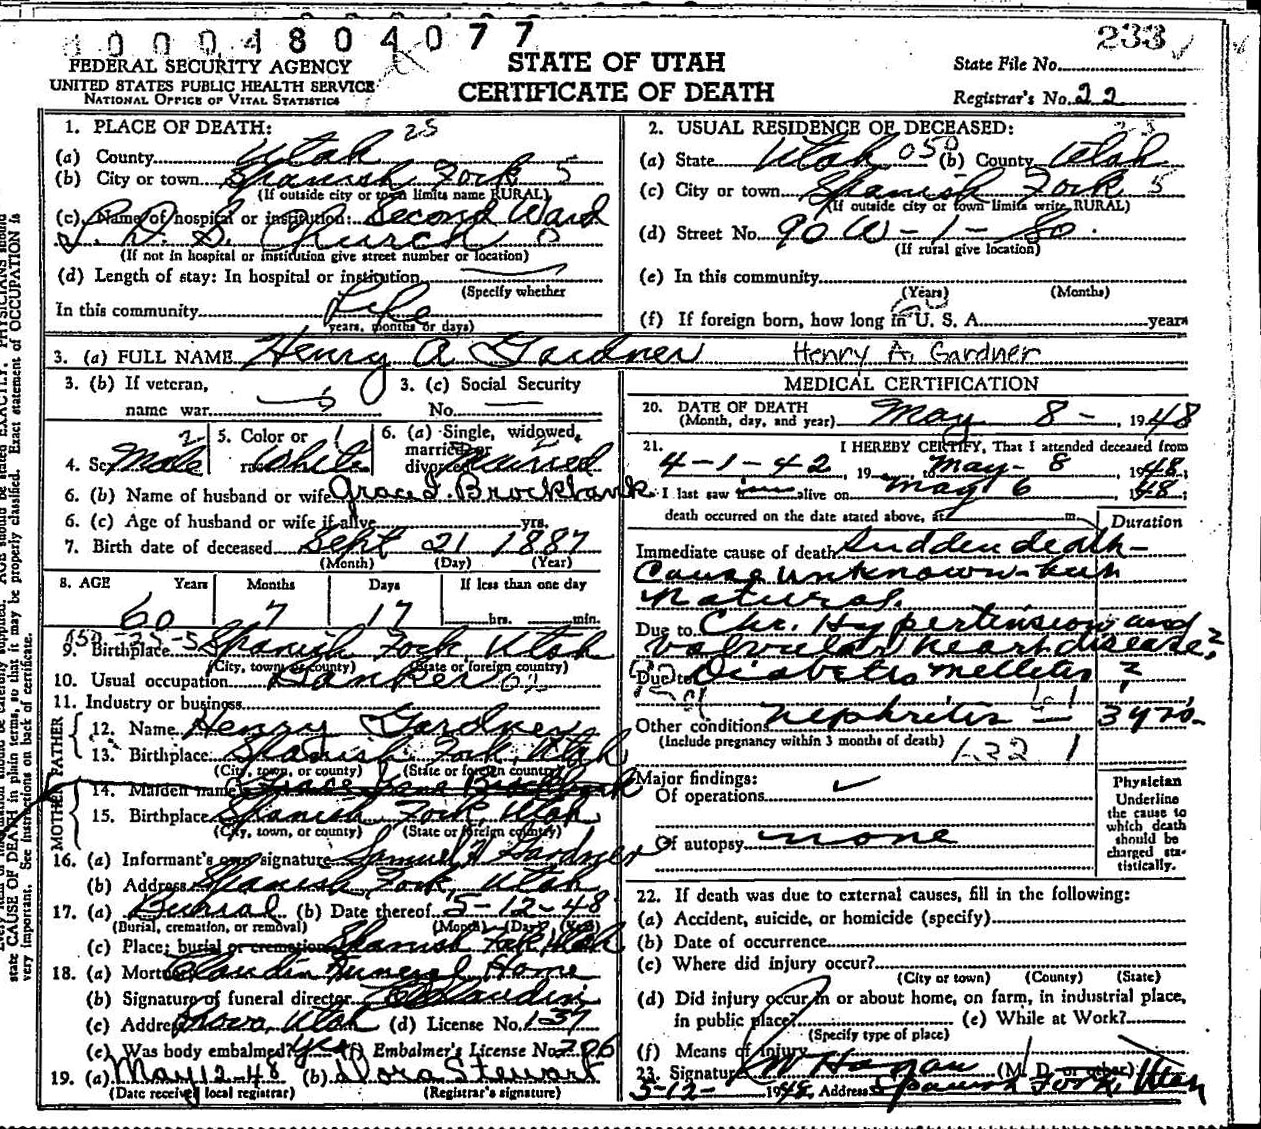 0 0 0 4 8 0 4 0 7 7
233
FEDERAL SECURITY AGENCY
UNITED STATES PUBLIC HEALTH SERVICE
NATIONAL OFFICE OF VITAL STATISTICS
STATE OF UTAH
CERTIFICATE OF DEATH
State File No.
Registrar's No. 22
1. PLACE OF DEATH: 25
(a) County Utah
(b) City or town Spanish Fork 5
(If outside city or town limits name RURAL)
(c) Name of hospital or institution: Second Ward
L. D. S. Church 0
(If not in hospital or institution give street number or location)
(d) Length of stay: In hospital or institution
(Specify whether
In this community Life
years, months or days)
2. USUAL RESIDENCE OF DECEASED:
(a) State Utah 050 (b) County Utah
(c) City or town Spanish Fork 5
(If outside city or town limits write RURAL)
(d) Street No. 90 W - 1 - So.
(If rural give location)
(e) In this community
(Years) (Months)
(f) If foreign born, how long in U. S. A. years
3. (a) FULL NAME Henry A Gardner Henry A. Gardner
3. (b) If veteran, name war
3. (c) Social Security No.
4. Sex Male 2
5. Color or race White 1
6. (a) Single, widowed, married or divorced Married
6. (b) Name of husband or wife Grace J. Brockbank
6. (c) Age of husband or wife if alive yrs.
7. Birth date of deceased Sept 21 1887
(Month) (Day) (Year)
8. AGE Years Months Days If less than one day
60 7 17 hrs. min.
050-25-5
9. Birthplace Spanish Fork Utah
(City, town or county) (State or foreign country)
10. Usual occupation Banker
11. Industry or business
FATHER
12. Name Henry Gardner
13. Birthplace Spanish Fork, Utah
(City, town, or county) (State or foreign country)
MOTHER
14. Maiden name Grace Brockbank
15. Birthplace Spanish Fork, Utah
(City, town, or county) (State or foreign country)
16. (a) Informant's own signature Samuel Gardner
(b) Address Spanish Fork, Utah
17. (a) Burial (b) Date thereof 5-12-48
(Burial, cremation, or removal) (Month) (Day) (Year)
(c) Place; burial or cremation Spanish Fork, Utah
18. (a) Mortuary Claudin Funeral Home
(b) Signature of funeral director Claudin
(c) Address Utah (d) License No. 137
(e) Was body embalmed? yes (f) Embalmer's License No. 206
19. (a) May 12-48 (b) Dora Stewart
(Date received local registrar) (Registrar's signature)
MEDICAL CERTIFICATION
20. DATE OF DEATH
(Month, day, and year) May 8 - 1948
21. I HEREBY CERTIFY, That I attended deceased from
4-1-42, 19 to May - 8 1948;
I last saw him alive on May 6 1948;
death occurred on the date stated above, at m.
Duration
Immediate cause of death Sudden death -
Cause unknown -
Natural.
Due to Chr. Hypertension and
Valvular heart disease?
Due to Diabetes Mellitus ?
Other conditions Nephritis - 3 yrs.
(Include pregnancy within 3 months of death) 132 1
Major findings:
Of operations
Of autopsy none
Physician
Underline
the cause to
which death
should be
charged sta-
tistically.
22. If death was due to external causes, fill in the following:
(a) Accident, suicide, or homicide (specify)
(b) Date of occurrence
(c) Where did injury occur?
(City or town) (County) (State)
(d) Did injury occur in or about home, on farm, in industrial place,
in public place? (e) While at Work?
(Specify type of place)
(f) Means of injury
23. Signature M Hagan (M. D. or other)
5-12- 1948, Address Spanish Fork, Utah
state CAUSE OF DEATH in plain terms, so that it may be properly classified. Exact statement of OCCUPATION is
very important. See instructions on back of certificate.